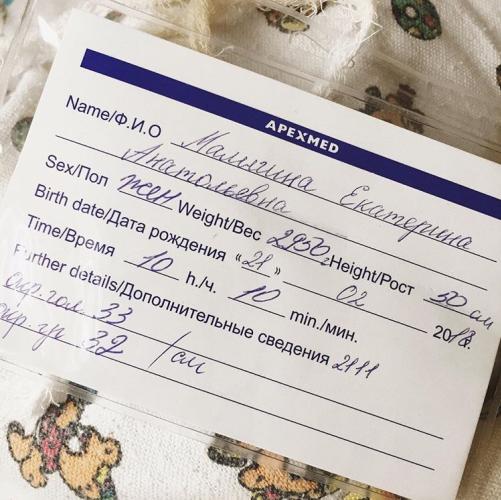 APEXMED
Name/Ф.И.О Малигина Екатерина
Анатольевна
Sex/Пол жен Weight/Вес 2950 г Height/Рост 50 см
Birth date/Дата рождения «21» 02 2018г.
Time/Время 10 h./ч. 10 min./мин.
Further details/Дополнительные сведения 2111
окр. гол 33
окр. гр 32 / см